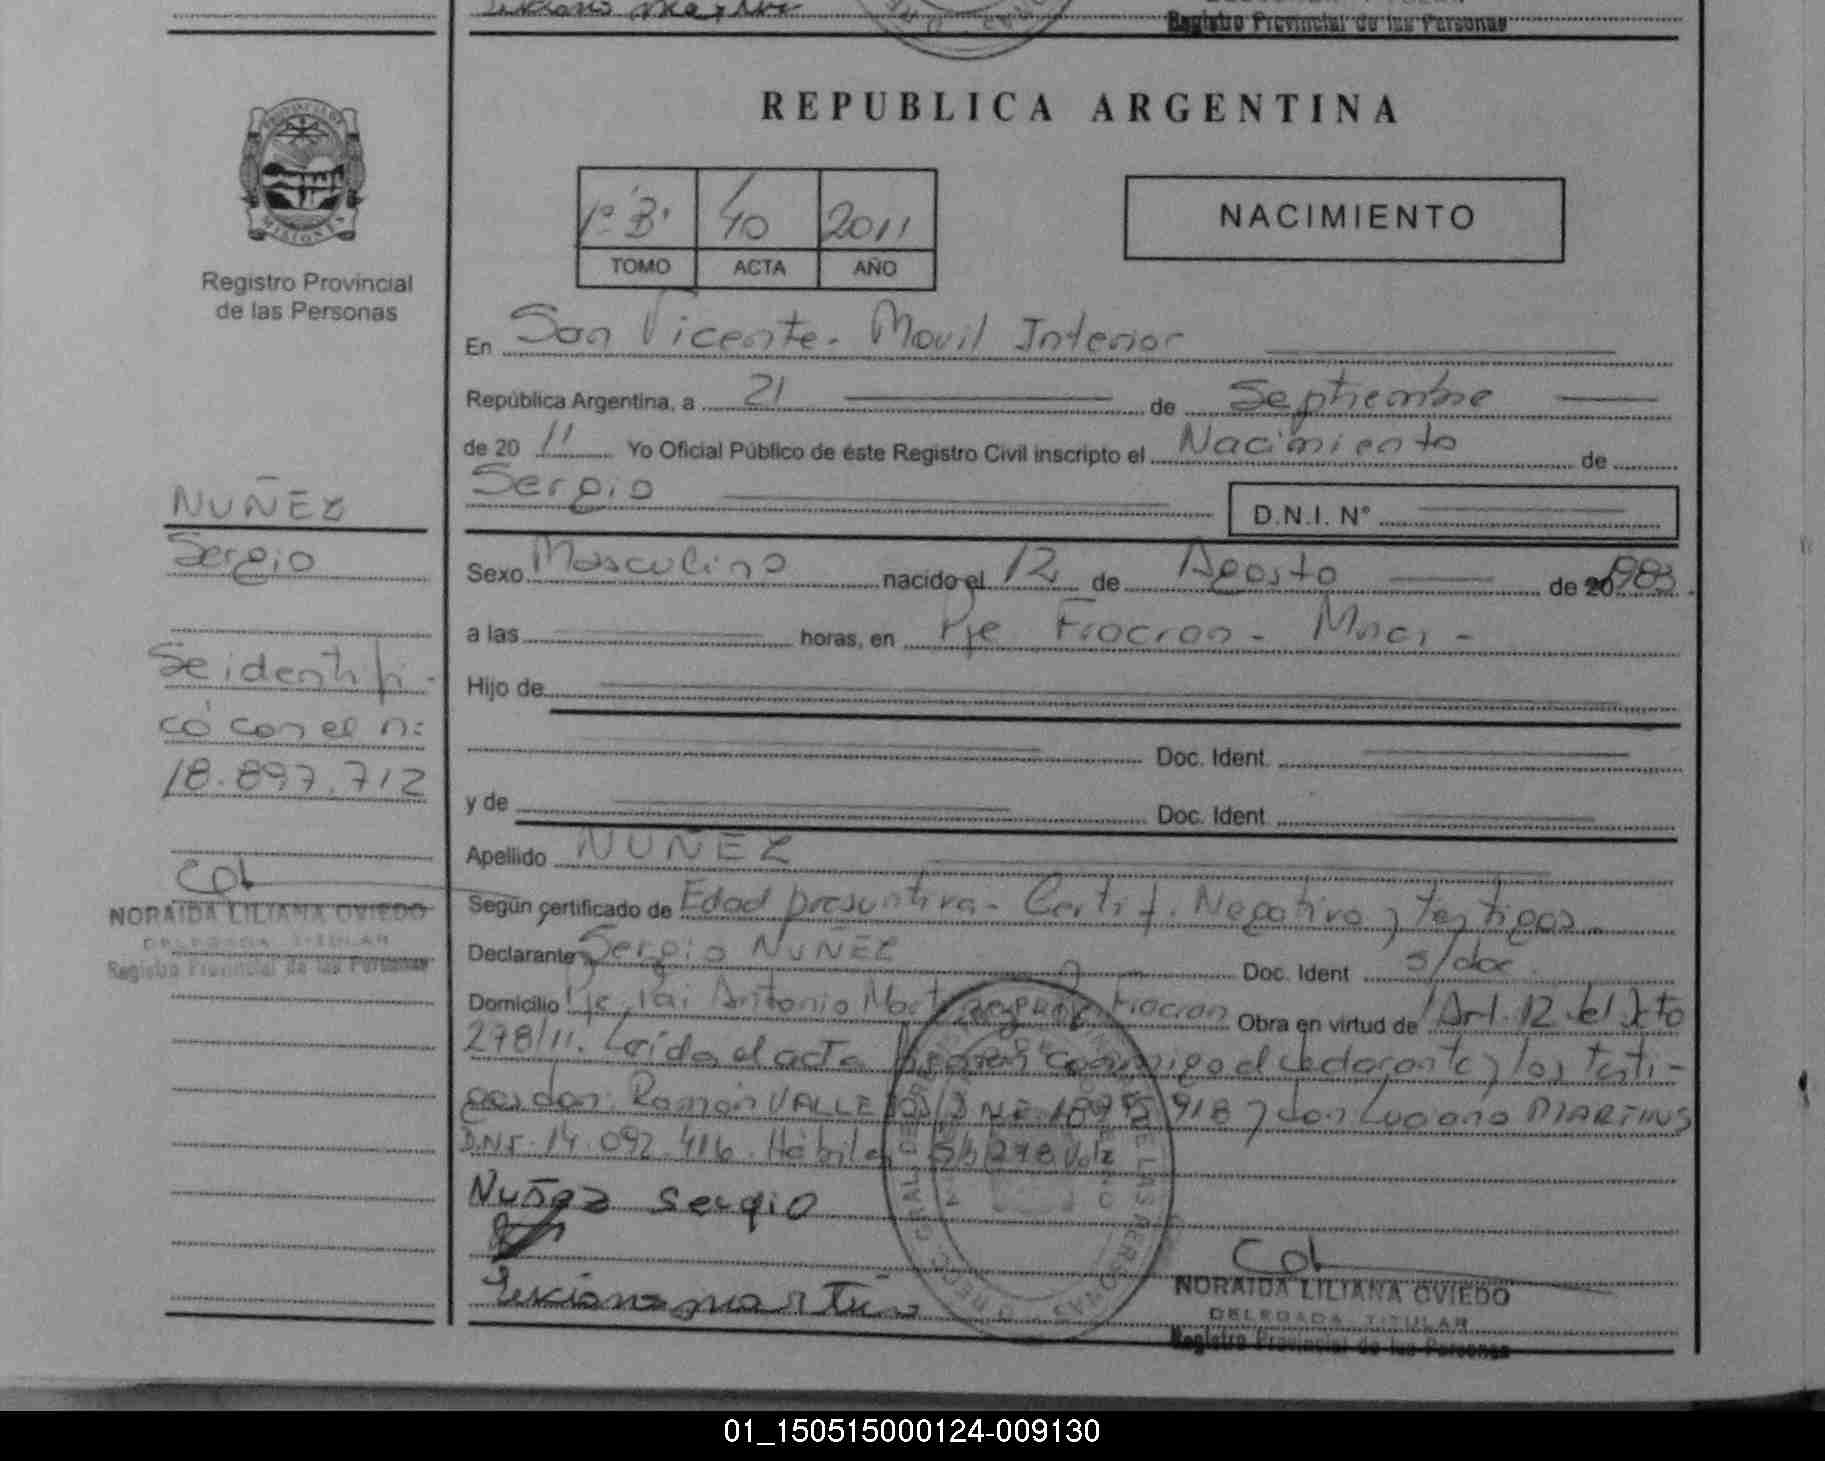 Registro Provincial de las Personas
REPUBLICA ARGENTINA
PROVINCIA DE
MISIONES
Registro Provincial
de las Personas
1º "B" 40 2011
TOMO ACTA AÑO
NACIMIENTO
En San Vicente - Movil Interior
República Argentina, a 21 de Septiembre
de 20 11 Yo Oficial Público de éste Registro Civil inscripto el Nacimiento de
Sergio D.N.I. Nº
Sexo Masculino nacido el 12 de Agosto de 20 1983
a las horas, en Pje Fracran - Mnes -
Hijo de
Doc. Ident.
y de Doc. Ident
Apellido NUÑEZ
Según certificado de Edad presuntiva - Certif. Negativo y testigos
Declarante Sergio NUÑEZ Doc. Ident s/doc
Domicilio Pje Pai Antonio Fracran Obra en virtud de Art. 12 del Dto
278/11. Leída el acta firman conmigo el declarante y los testi-
gos don: Ramón VALLEJOS D.N.I. 918 y don Luciano MARTINS
D.N.I. 14.092.416. Hábiles 278
Nuñez Sergio
Luciano Martin
NORAIDA LILIANA OVIEDO
DELEGADA TITULAR
Registro Provincial de las Personas
NUÑEZ
Sergio
Se identifi-
có con el n:
18.897.712
NORAIDA LILIANA OVIEDO
DELEGADA TITULAR
Registro Provincial de las Personas
01_150515000124-009130